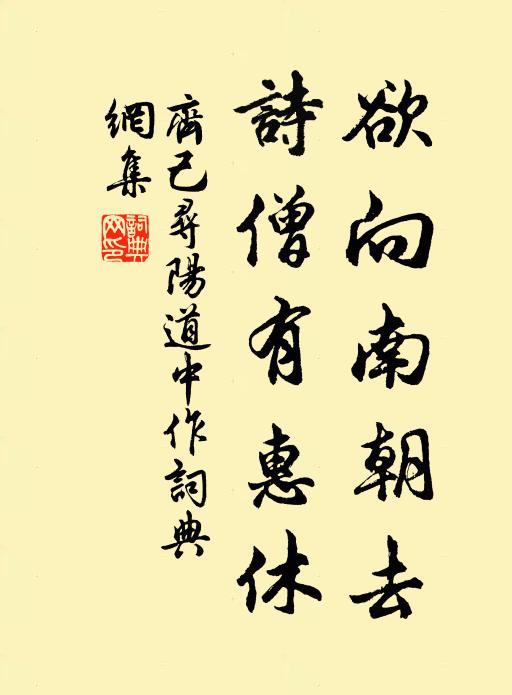 欲向南朝去
詩僧有惠休
齊己尋陽道中作詞典
網集
詞典網印